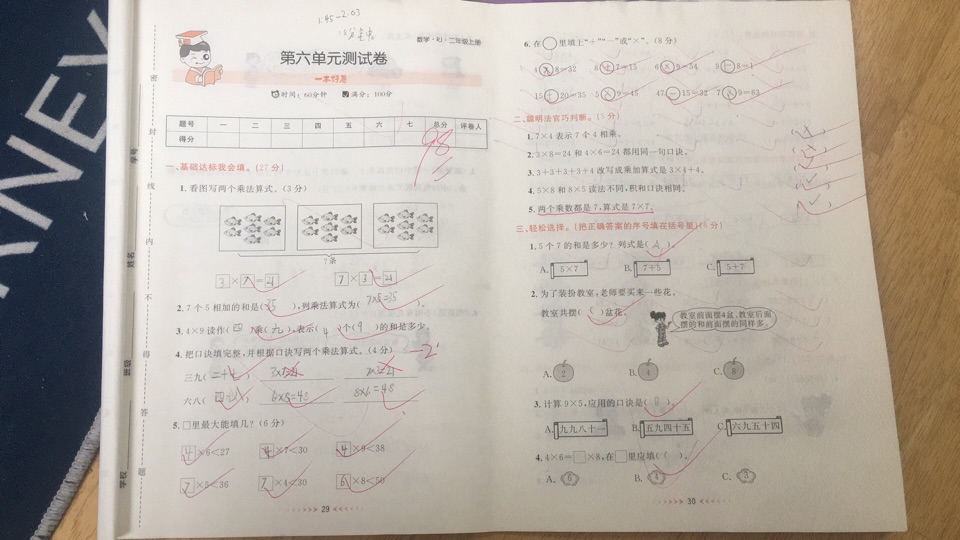 1:45-2:03
数学·RJ·二年级上册
第六单元测试卷
一本好卷
时间：60分钟 满分：100分
题号 一 二 三 四 五 六 七 总分 评卷人
得分
98
一、基础达标我会填。(27分)
1.看图写两个乘法算式。(3分)
?条
3×7=21 7×3=21
2.7个5相加的和是(35),列乘法算式为(7×5=35)。
3.4×9读作(四)乘(九),表示(4)个(9)的和是多少。
4.把口诀填完整,并根据口诀写两个乘法算式。(4分) -2
三九( )
六八( ) 6×8=48 8×6=48
5.□里最大能填几?(6分)
4×6<27 4×7<30 4×9<38
7×5<36 7×4<30 6×8<50
29
6.在○里填上“+”“-”或“×”。(8分)
4×8=32 8+7=15 6×9=54 9-8=1
15+20=35 5×9=45 47-15=32 7×9=63
二、聪明法官巧判断。(5分)
1.7×4表示7个4相乘。
2.3×8=24和4×6=24都用同一句口诀。
3.3+3+3+3+4改写成乘加算式是3×4+4。
4.5×8和8×5读法不同,积和口诀相同。
5.两个乘数都是7,算式是7×7。
三、轻松选择。(把正确答案的序号填在括号里)(6分)
1.5个7的和是多少?列式是(A)。
A. 5×7 B. 7+5 C. 5+7
2.为了装扮教室,老师要买来一些花。
教室共摆( )盆花。
教室前面摆4盆,教室后面摆的和前面摆的同样多。
A. 2 B. 4 C. 8
3.计算9×5,应用的口诀是( )。
A. 九九八十一 B. 五九四十五 C. 六九五十四
4.4×6=□×8,在□里应填( )。
A. 6 B. 4 C. 3
30
学号
姓名
班级
学校
密 封 线 内 不 得 答 题